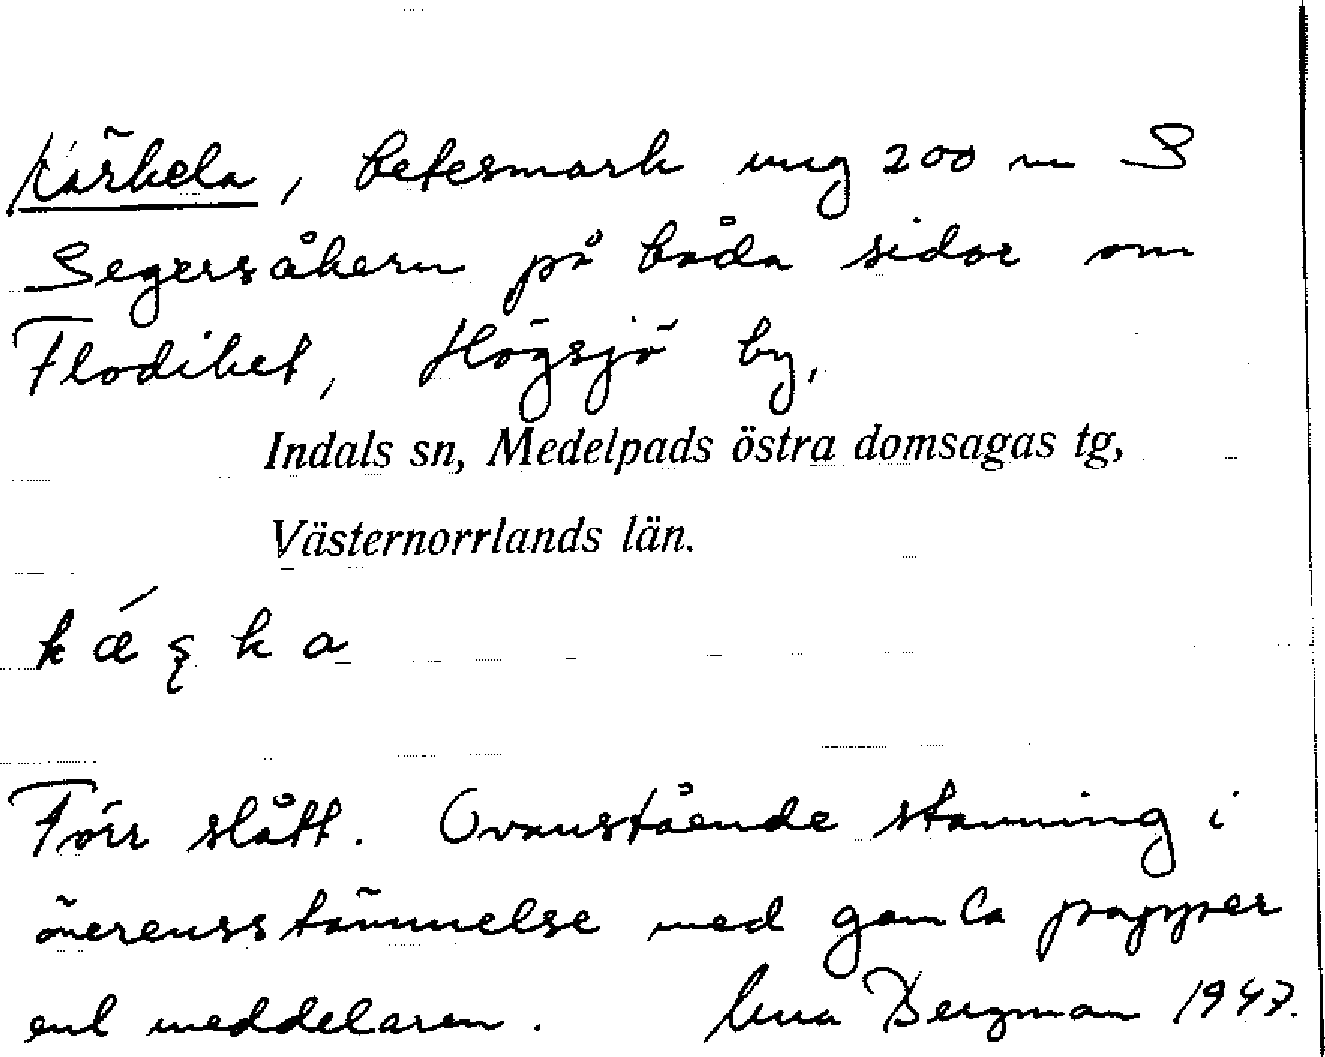 Kärkela, betesmark ung 200 m S
Segersåkern på båda sidor om
Flodiket, Högsjö by,
Indals sn, Medelpads östra domsagas tg,
Västernorrlands län.
Förr slått. Ovanstående stavning i
överensstämmelse med gamla papper
enl meddelaren. Bergman 1947.